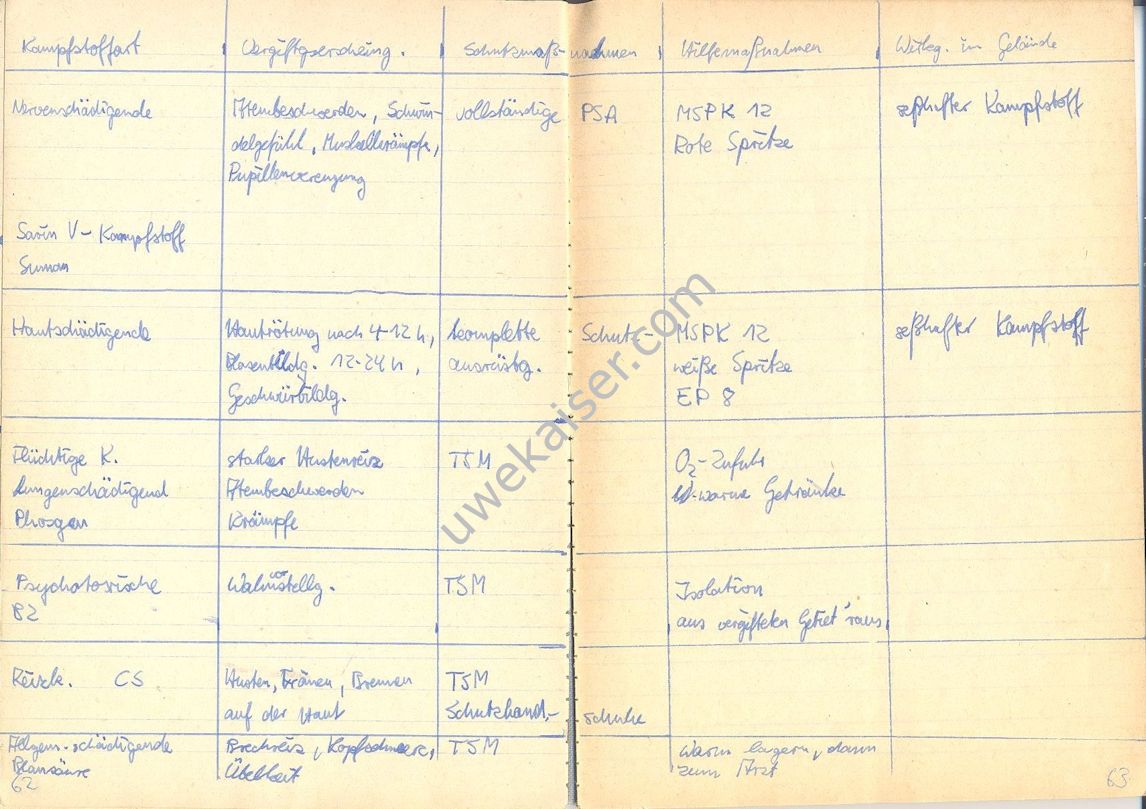 Kampfstoffart | Vergiftgserscheing. | Schutzmaß-nahmen | Hilfsmaßnahmen | Wirkg. im Gelände
Nervenschädigende | Atembeschwerden, Schwin- | vollständige PSA | MSPK 12 | seßhafter Kampfstoff
delgefühl, Muskelkrämpfe, | Rote Spritze
Pupillenverengung
Sarin V-Kampfstoff
Soman
Hautschädigende | Hautrötung nach 4-12 h, | komplette Schutz- | MSPK 12 | seßhafter Kampfstoff
Blasenbildg. 12-24 h, | ausrüstg. | weiße Spritze
Geschwürbildg. | EP 8
Flüchtige K. | starker Hustenreiz | TSM | O₂-Zufuhr
Lungenschädigend | Atembeschwerden | warme Getränke
Phosgen | Krämpfe
Psychotoxische | Wahnvorstellg. | TSM | Isolation
BZ | aus vergifteten Gebiet 'raus
Reizk. CS | Husten, Tränen, Brennen | TSM
auf der Haut | Schutzhand-schuhe
Allgem.-schädigende | Brechreiz, Kopfschmerz, | TSM | warm lagern, dann
Blausäure | Übelkeit | zum Arzt
62
63
uwekaiser.com